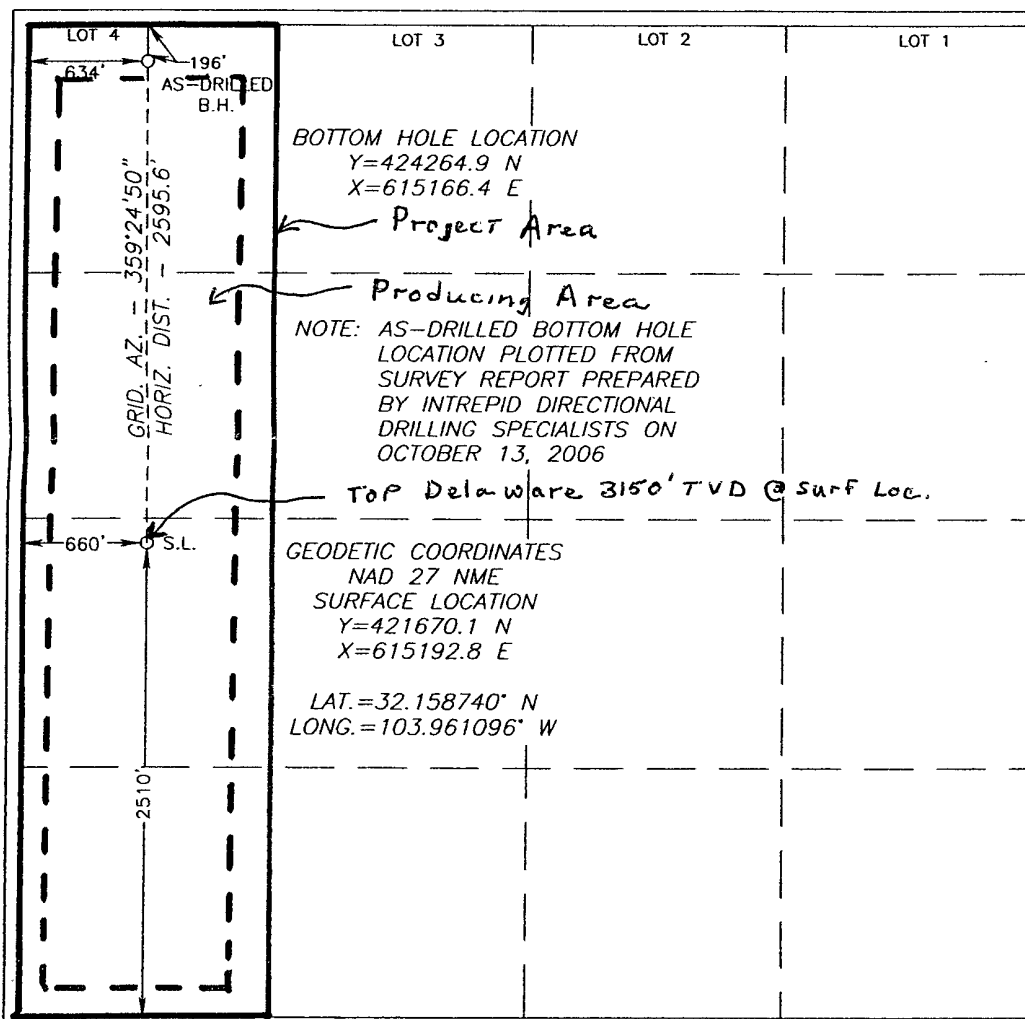 LOT 4
LOT 3
LOT 2
LOT 1
634'
196'
AS-DRILLED
B.H.
BOTTOM HOLE LOCATION
Y=424264.9 N
X=615166.4 E
Project Area
GRID. AZ. - 359°24'50"
HORIZ. DIST. - 2595.6'
Producing Area
NOTE: AS-DRILLED BOTTOM HOLE
LOCATION PLOTTED FROM
SURVEY REPORT PREPARED
BY INTREPID DIRECTIONAL
DRILLING SPECIALISTS ON
OCTOBER 13, 2006
Top Delaware 3150' TVD @ Surf Loc.
660'
S.L.
GEODETIC COORDINATES
NAD 27 NME
SURFACE LOCATION
Y=421670.1 N
X=615192.8 E
LAT.=32.158740° N
LONG.=103.961096° W
2510'